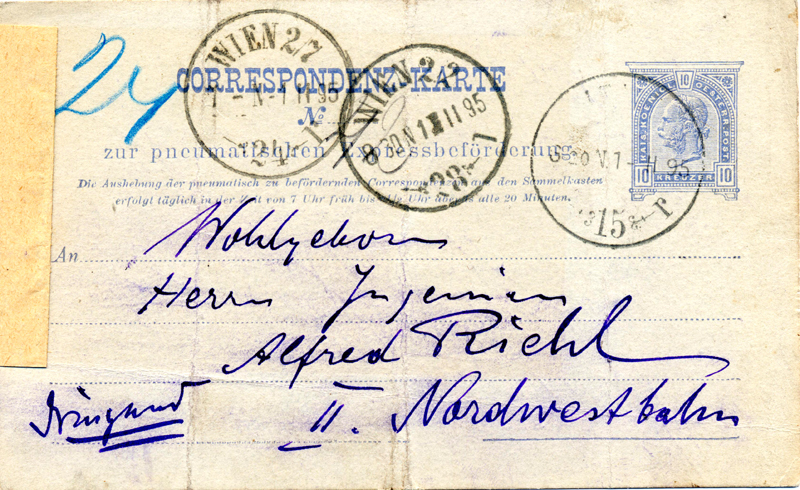 24
CORRESPONDENZ-KARTE
№
zur pneumatischen Expressbeförderung.
Die Aushebung der pneumatisch zu befördernden Correspondenzen aus den Sammelkasten
erfolgt täglich in der Zeit von 7 Uhr früh bis Uhr abends alle 20 Minuten.
WIEN 2/7
1 II 95
WIEN 2/2
8 20 V 1 II 95
V. 1 II 95
15
10
KAIS. KOENIGL. OESTERR. POST.
10 KREUZER 10
An Wohlgeboren
Herrn Ingenieur
Alfred Riehl
Dringend II. Nordwestbahn